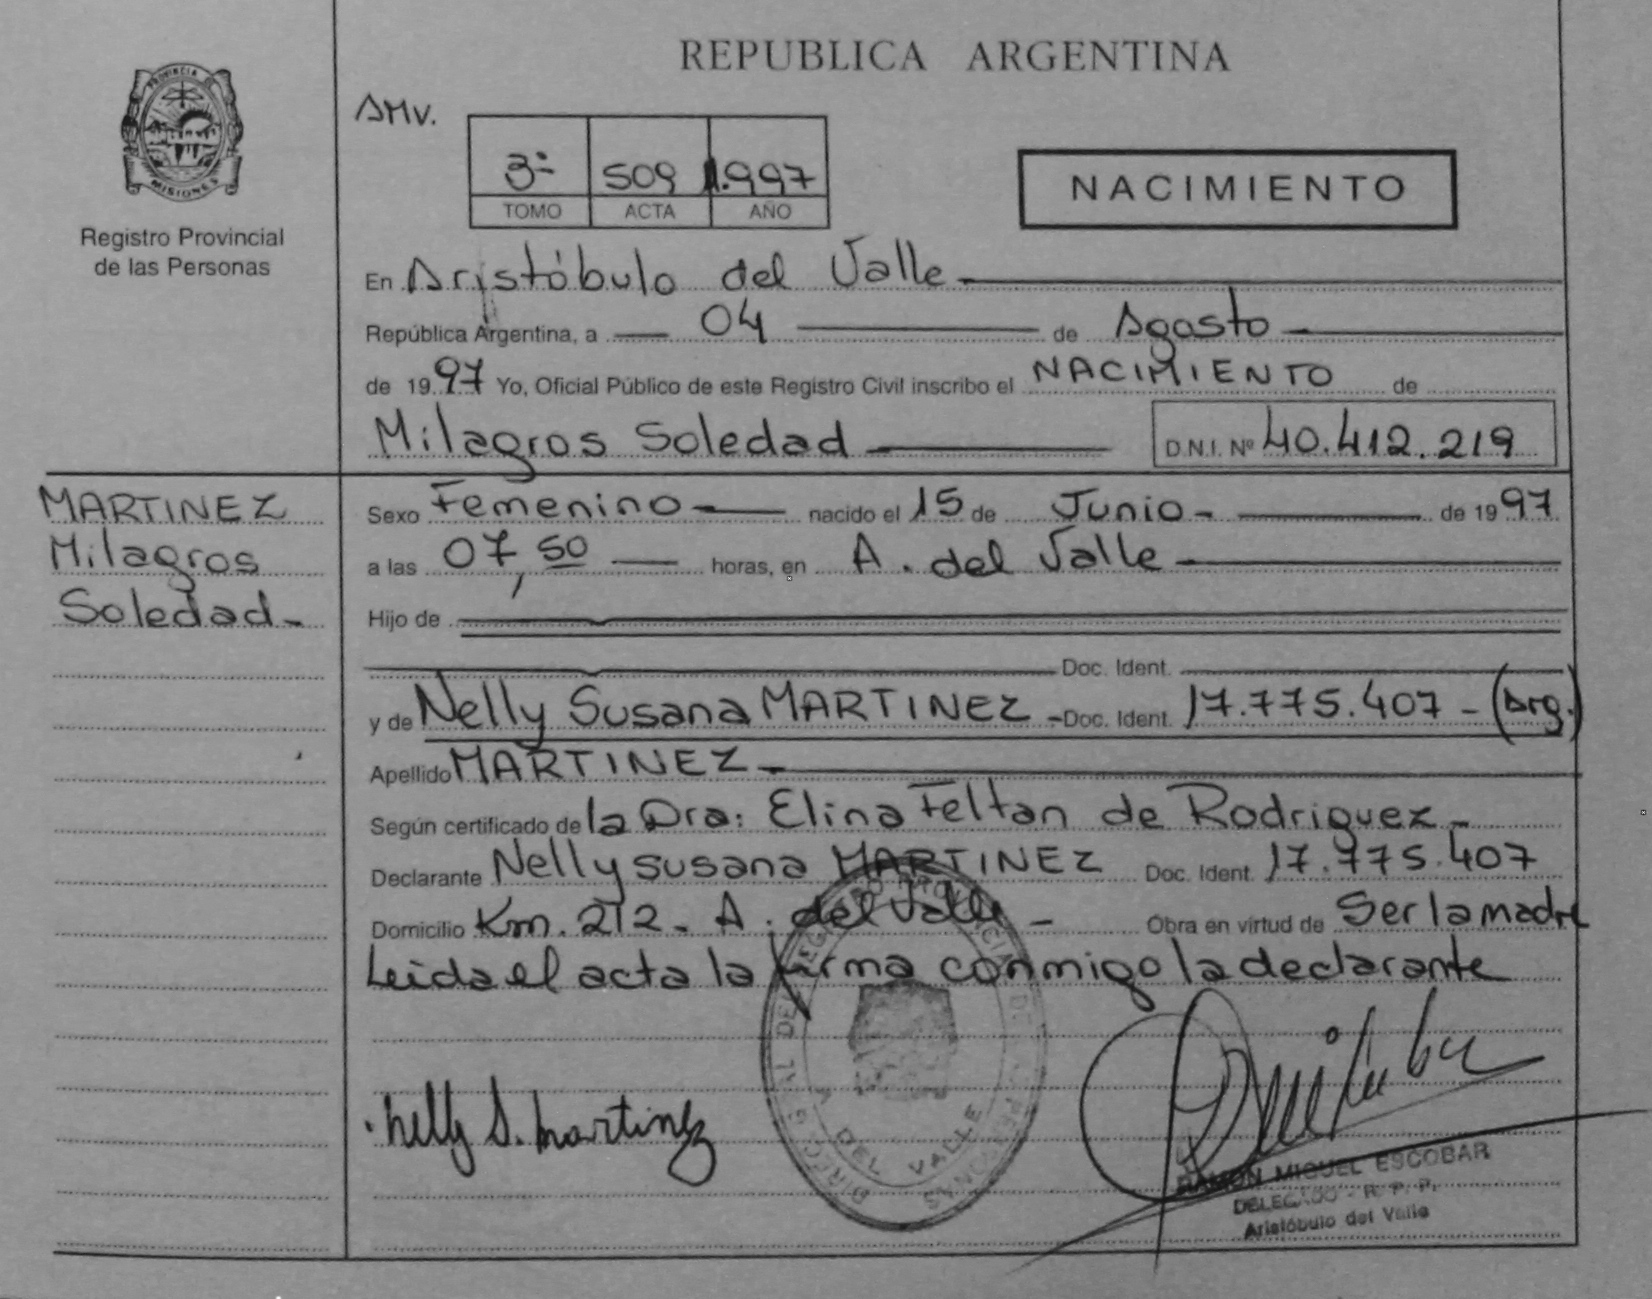 REPUBLICA ARGENTINA
PROVINCIA DE
MISIONES
Registro Provincial
de las Personas
AMV.
3º 509 1.997
TOMO ACTA AÑO
NACIMIENTO
En Aristóbulo del Valle
República Argentina, a 04 de Agosto
de 1997 Yo, Oficial Público de este Registro Civil inscribo el NACIMIENTO de
Milagros Soledad D.N.I. Nº 40.412.219
MARTINEZ
Milagros
Soledad
Sexo Femenino nacido el 15 de Junio de 1997
a las 07,50 horas, en A. del Valle
Hijo de
Doc. Ident.
y de Nelly Susana MARTINEZ Doc. Ident. 17.775.407 - (Arg.)
Apellido MARTINEZ
Según certificado de la Dra: Elina Feltan de Rodriguez
Declarante Nelly Susana MARTINEZ Doc. Ident. 17.775.407
Domicilio Km. 212 - A. del Valle - Obra en virtud de Ser la madre
Leida el acta la firma conmigo la declarante
Nelly S. Martinez
DEL VALLE
RAMON MIGUEL ESCOBAR
DELEGADO - R. P. P.
Aristóbulo del Valle